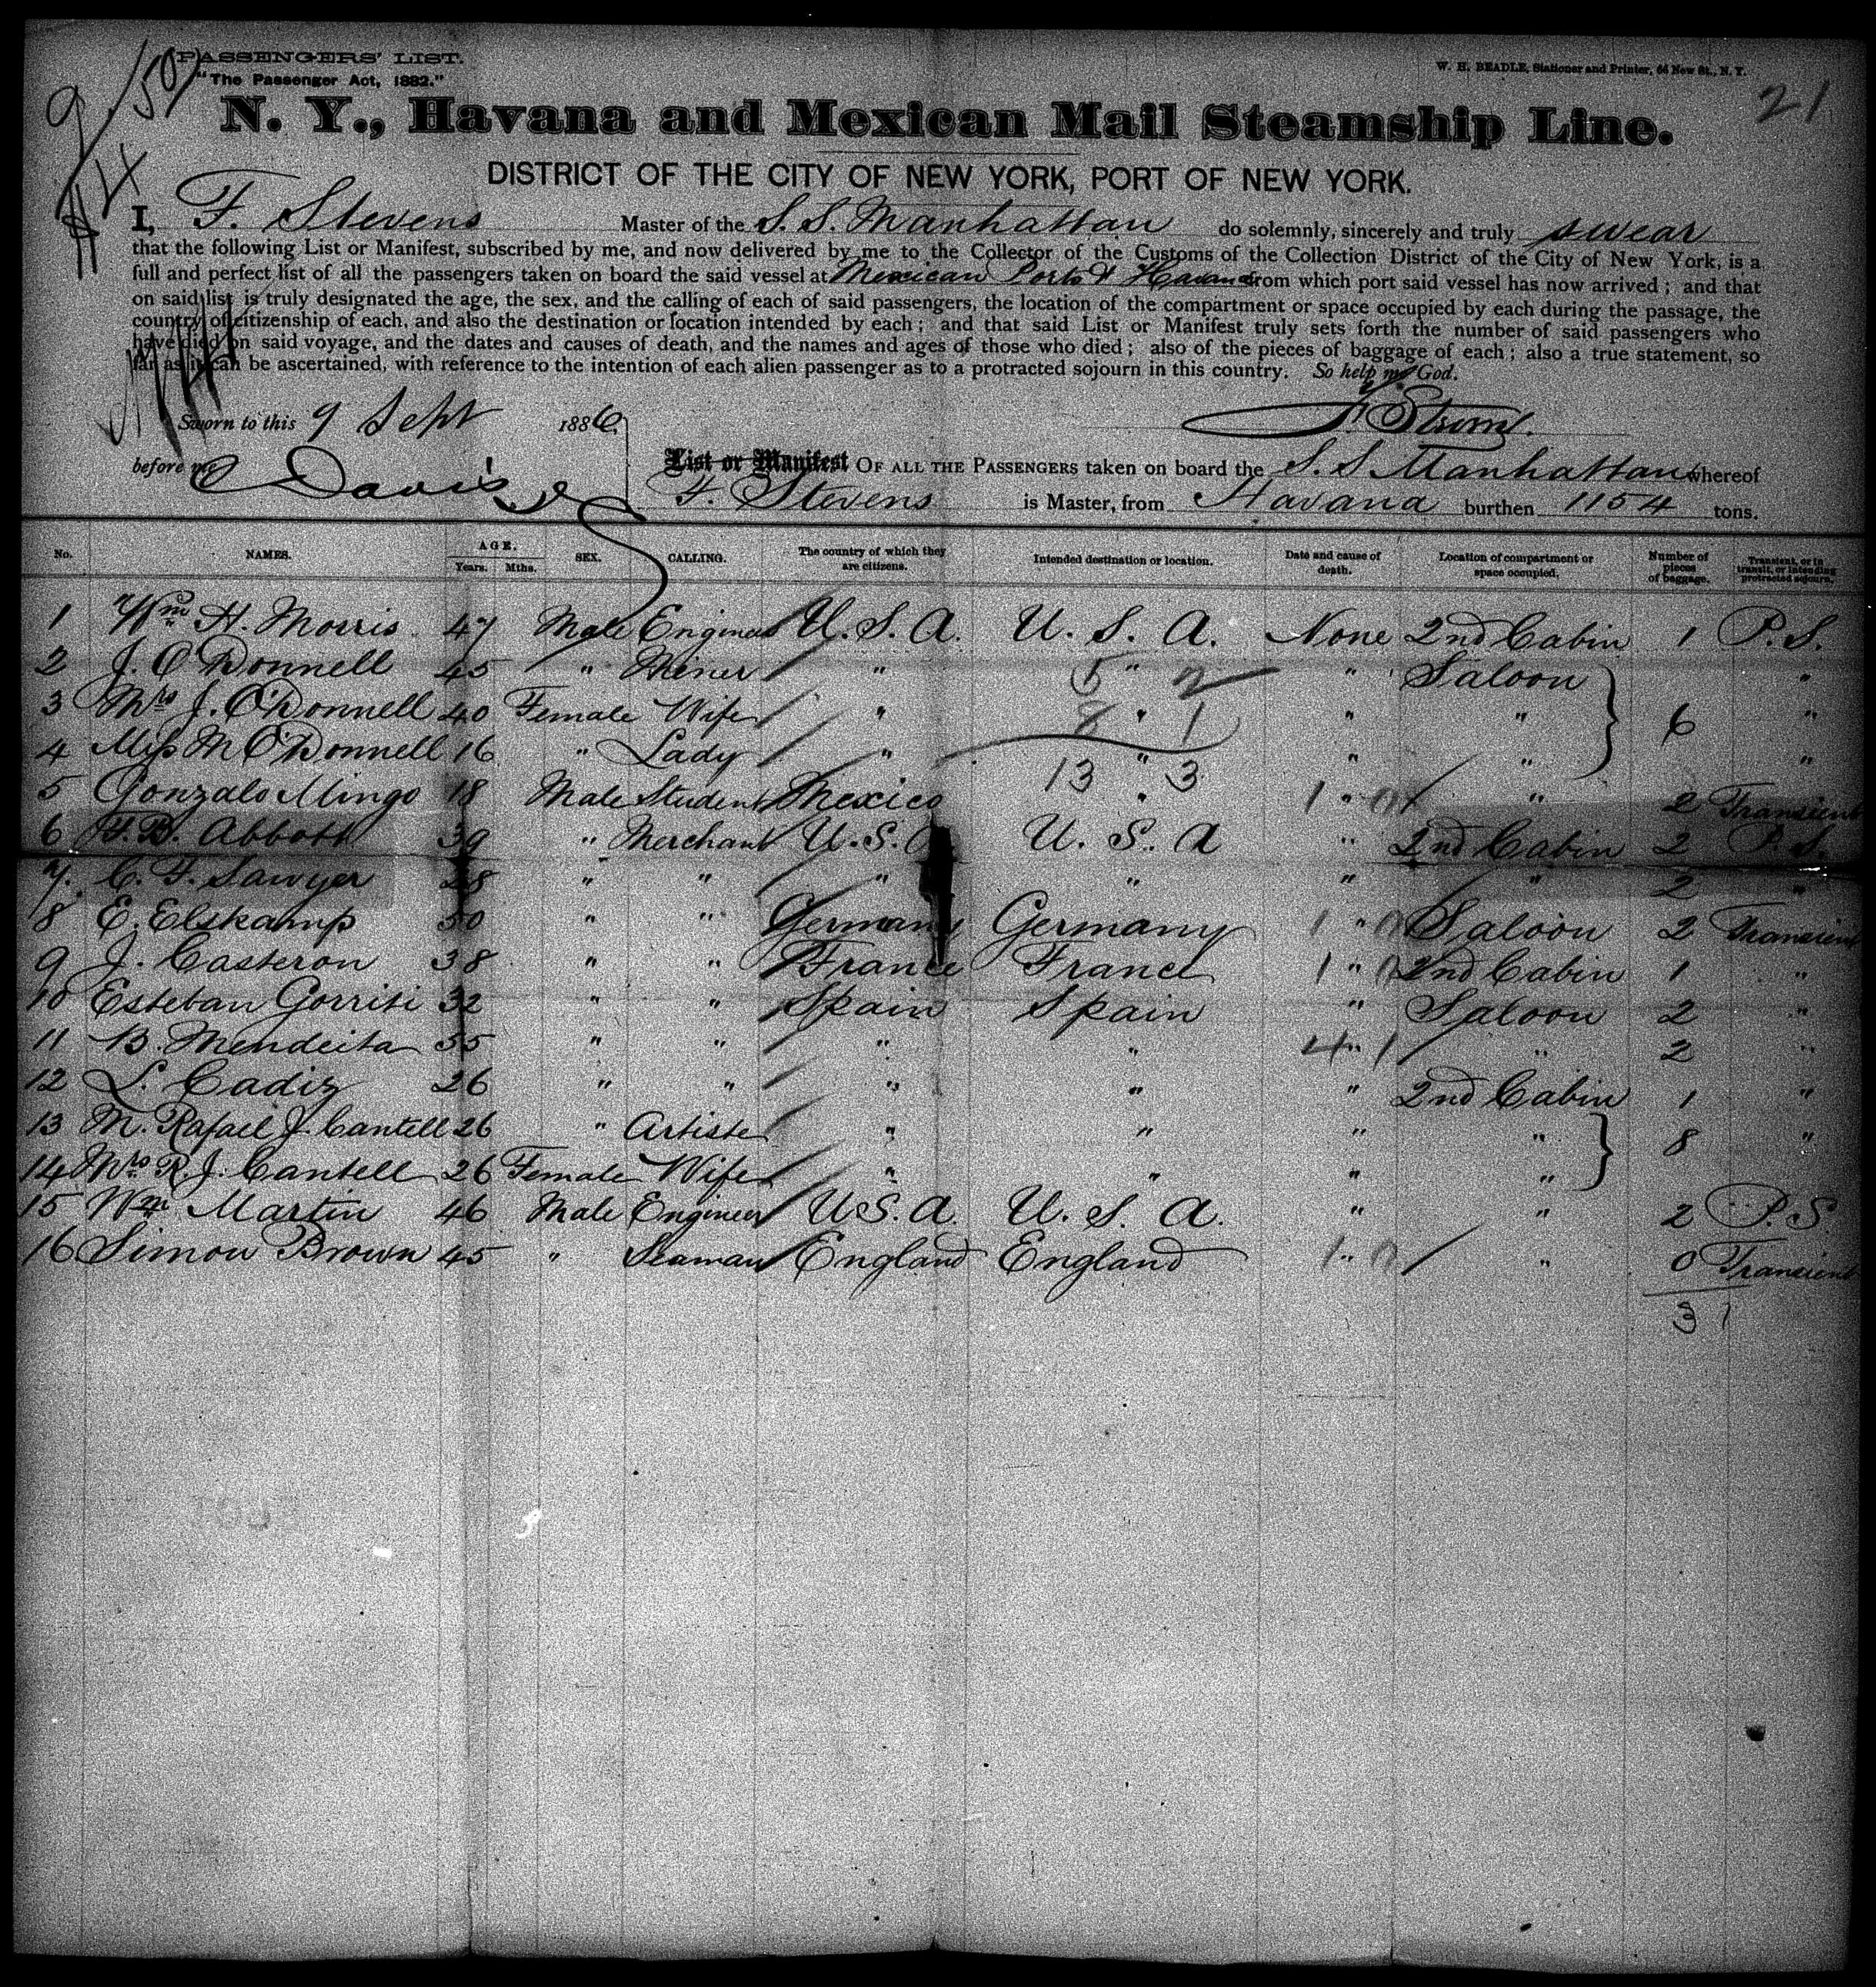 PASSENGERS' LIST.
"The Passenger Act, 1882."
W. H. BEADLE, Stationer and Printer, 64 New St., N. Y.
9/50
21
N. Y., Havana and Mexican Mail Steamship Line.
DISTRICT OF THE CITY OF NEW YORK, PORT OF NEW YORK.
I, F. Stevens Master of the S. S. Manhattan do solemnly, sincerely and truly swear
that the following List or Manifest, subscribed by me, and now delivered by me to the Collector of the Customs of the Collection District of the City of New York, is a
full and perfect list of all the passengers taken on board the said vessel at Mexican Ports & Havana from which port said vessel has now arrived; and that
on said list is truly designated the age, the sex, and the calling of each of said passengers, the location of the compartment or space occupied by each during the passage, the
country of citizenship of each, and also the destination or location intended by each; and that said List or Manifest truly sets forth the number of said passengers who
have died on said voyage, and the dates and causes of death, and the names and ages of those who died; also of the pieces of baggage of each; also a true statement, so
far as it can be ascertained, with reference to the intention of each alien passenger as to a protracted sojourn in this country. So help me God.
Sworn to this 9 Sept 1886
F. Stevens
before me Davis
List or Manifest OF ALL THE PASSENGERS taken on board the S. S Manhattan whereof
F. Stevens is Master, from Havana burthen 1154 tons.
No. NAMES. AGE. Years. Mths. SEX. CALLING. The country of which they are citizens. Intended destination or location. Date and cause of death. Location of compartment or space occupied. Number of pieces of baggage. Transient, or in transit, or intending protracted sojourn.
1 Wm H. Morris 47 Male Engineer U. S. A. U. S. A. None 2nd Cabin 1 P. S.
2 J. O'Donnell 45 " Miner " " " Saloon "
5 2
3 Mrs J. O'Donnell 40 Female Wife " " " " 6 "
8 1
4 Miss M O'Donnell 16 " Lady " " " " "
13 3
5 Gonzalo Mingo 18 Male Student Mexico " 1 " 0 " 2 Transient
6 F. B. Abbott 39 " Merchant U. S. A U. S. A " 2nd Cabin 2 P. S.
7. C. F. Sawyer 28 " " " " " " 2 "
8 E. Elskamp 50 " " Germany Germany 1 " 0 Saloon 2 Transient
9 J. Casteron 38 " " France France 1 " 0 2nd Cabin 1 "
10 Esteban Gorriti 32 " " Spain Spain " Saloon 2 "
11 B. Mendeita 35 " " " " 4 " 1 " 2 "
12 L. Cadiz 26 " " " " " 2nd Cabin 1 "
13 M. Rafael J. Cantell 26 " Artiste " " " " 8 "
14 Mrs R. J. Cantell 26 Female Wife " " " "
15 Wm Martin 46 Male Engineer U. S. A. U. S. A. " " 2 P. S.
16 Simon Brown 45 " Seaman England England 1 " 0 " 0 Transient
31